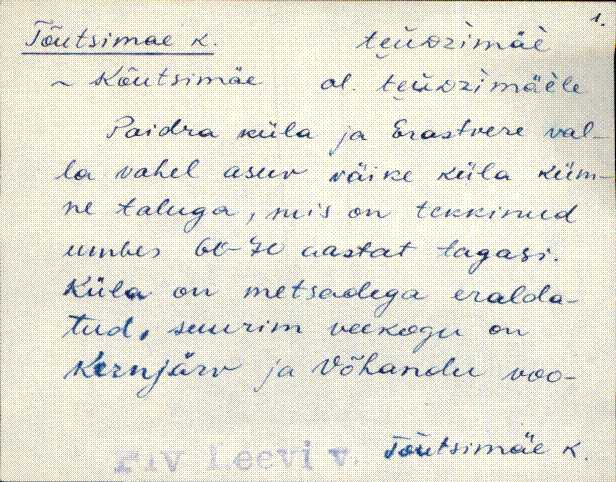 1.
Tõutsimäe k. teùzìmäè
~ Kõutsimäe al. teùzìmäèle
Paidra küla ja Erastvere val-
la vahel asuv väike küla küm-
ne taluga, mis on tekkinud
umbes 60-70 aastat tagasi.
Küla on metsadega eralda-
tud, suurim veekogu on
Kernjärv ja Võhandu voo-
Tõutsimäe k.
Leevi v.